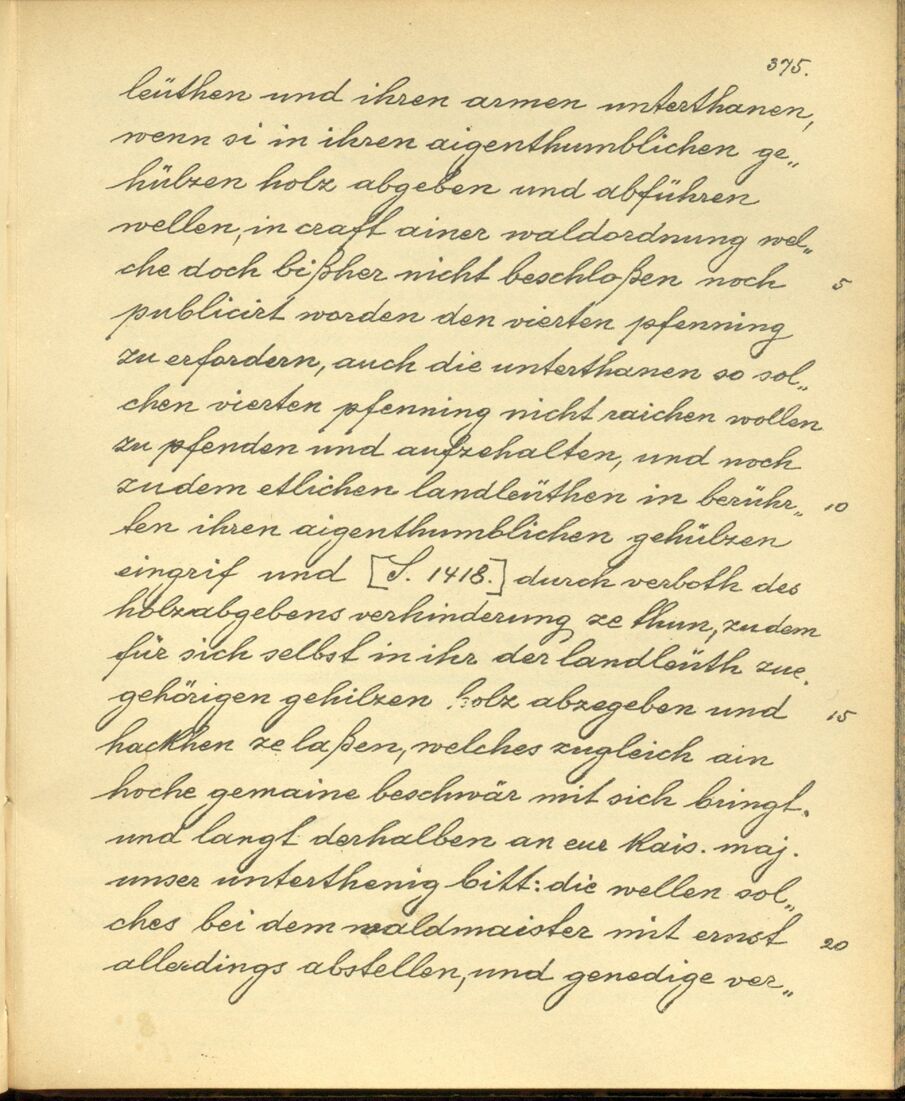 375.
leüthen und ihren armen unterthanen,
wenn si in ihren aigenthumblichen ge„
hülzen holz abgeben und abführen
wellen, in craft ainer waldordnung wel„
che doch bißher nicht beschloßen noch 5
publicirt worden den vierten pfenning
zu erfordern, auch die unterthanen so sol„
chen vierten pfenning nicht raichen wollen
zu pfenden und aufzehalten, und noch
zudem etlichen landleüthen in berühr„ 10
ten ihren aigenthumblichen gehülzen
eingrif und [S. 1418.] durch verboth des
holzabgebens verhinderung ze thun, zudem
für sich selbst in ihr der landleüth zue.
gehörigen gehilzen holz abzegeben und 15
hackhen ze laßen, welches zugleich ain
hoche gemaine beschwär mit sich bringt.
und langt derhalben an eur kais. maj.
unser unterthenig bitt: die wellen sol„
ches bei dem waldmaister mit ernst 20
allerdings abstellen, und genedige ver„